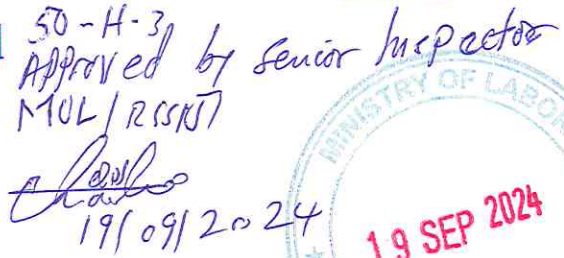 50-H-3
Approved by Senior Inspector
MOL/RSSNT
19/09/2024
MINISTRY OF LABOR
19 SEP 2024